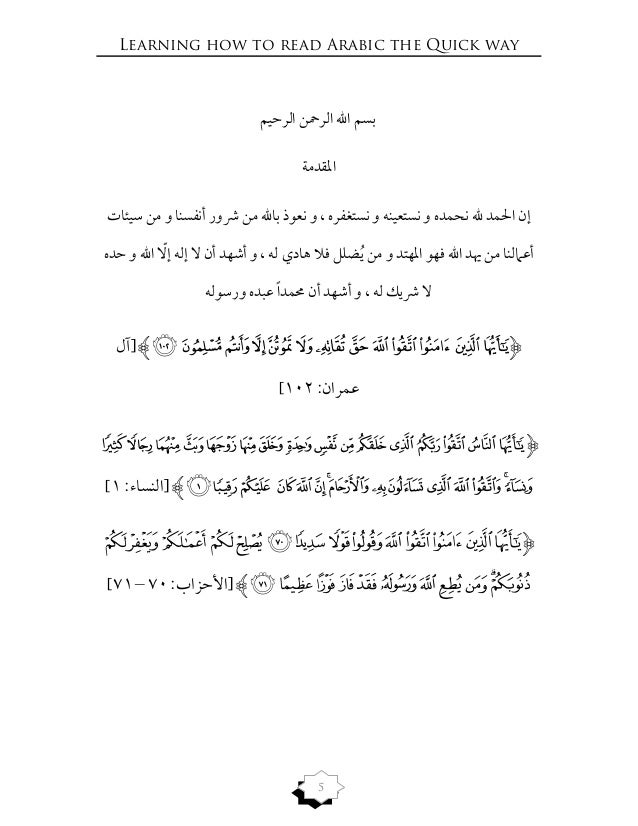 Learning how to read Arabic the Quick way
بسم الله الرحمن الرحيم
المقدمة
إن الحمد لله نحمده و نستعينه و نستغفره ، و نعوذ بالله من شرور أنفسنا و من سيئات
أعمالنا من يهد الله فهو المهتد و من يُضلل فلا هادي له ، و أشهد أن لا إله إلّا الله و حده
لا شريك له ، و أشهد أن محمداً عبده ورسوله
﴿ يَٰٓأَيُّهَا ٱلَّذِينَ ءَامَنُوا۟ ٱتَّقُوا۟ ٱللَّهَ حَقَّ تُقَاتِهِۦ وَلَا تَمُوتُنَّ إِلَّا وَأَنتُم مُّسْلِمُونَ ١٠٢ ﴾ [آل
عمران: ١٠٢]
﴿ يَٰٓأَيُّهَا ٱلنَّاسُ ٱتَّقُوا۟ رَبَّكُمُ ٱلَّذِى خَلَقَكُم مِّن نَّفْسٍ وَٰحِدَةٍ وَخَلَقَ مِنْهَا زَوْجَهَا وَبَثَّ مِنْهُمَا رِجَالًا كَثِيرًا
وَنِسَآءً ۚ وَٱتَّقُوا۟ ٱللَّهَ ٱلَّذِى تَسَآءَلُونَ بِهِۦ وَٱلْأَرْحَامَ ۚ إِنَّ ٱللَّهَ كَانَ عَلَيْكُمْ رَقِيبًا ١ ﴾ [النساء: ١]
﴿ يَٰٓأَيُّهَا ٱلَّذِينَ ءَامَنُوا۟ ٱتَّقُوا۟ ٱللَّهَ وَقُولُوا۟ قَوْلًا سَدِيدًا ٧٠ يُصْلِحْ لَكُمْ أَعْمَٰلَكُمْ وَيَغْفِرْ لَكُمْ
ذُنُوبَكُمْ ۗ وَمَن يُطِعِ ٱللَّهَ وَرَسُولَهُۥ فَقَدْ فَازَ فَوْزًا عَظِيمًا ٧١ ﴾ [الأحزاب: ٧٠ – ٧١]
5